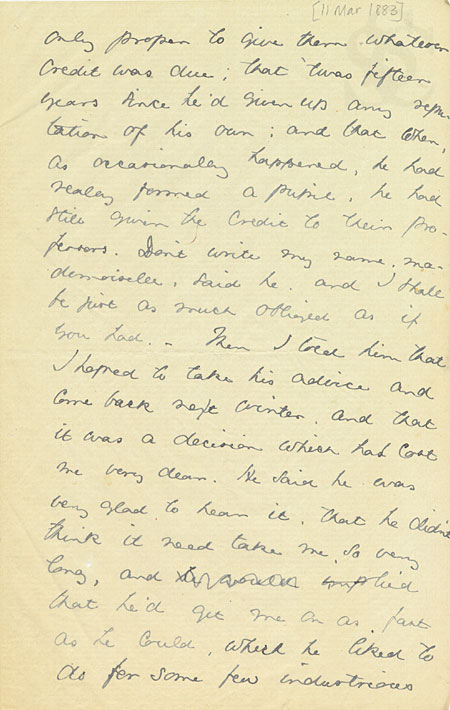 [11 Mar 1883]
only proper to give them whatever
credit was due; that 'twas fifteen
years since he'd given up any repu-
tation of his own; and that when,
as occasionally happened, he had
really formed a pupil, he had
still given the credit to their pro-
fessors. Don't write my name, ma-
demoiselle, said he, and I shall
be just as much obliged as if
you had. – Then I told him that
I hoped to take his advice and
come back next winter, and that
it was a decision which had cost
me very dear. He said he was
very glad to hear it, that he didn't
think it need take me so very
long, and he would implied
that he'd get me on as fast
as he could, which he liked to
do for some few industrious